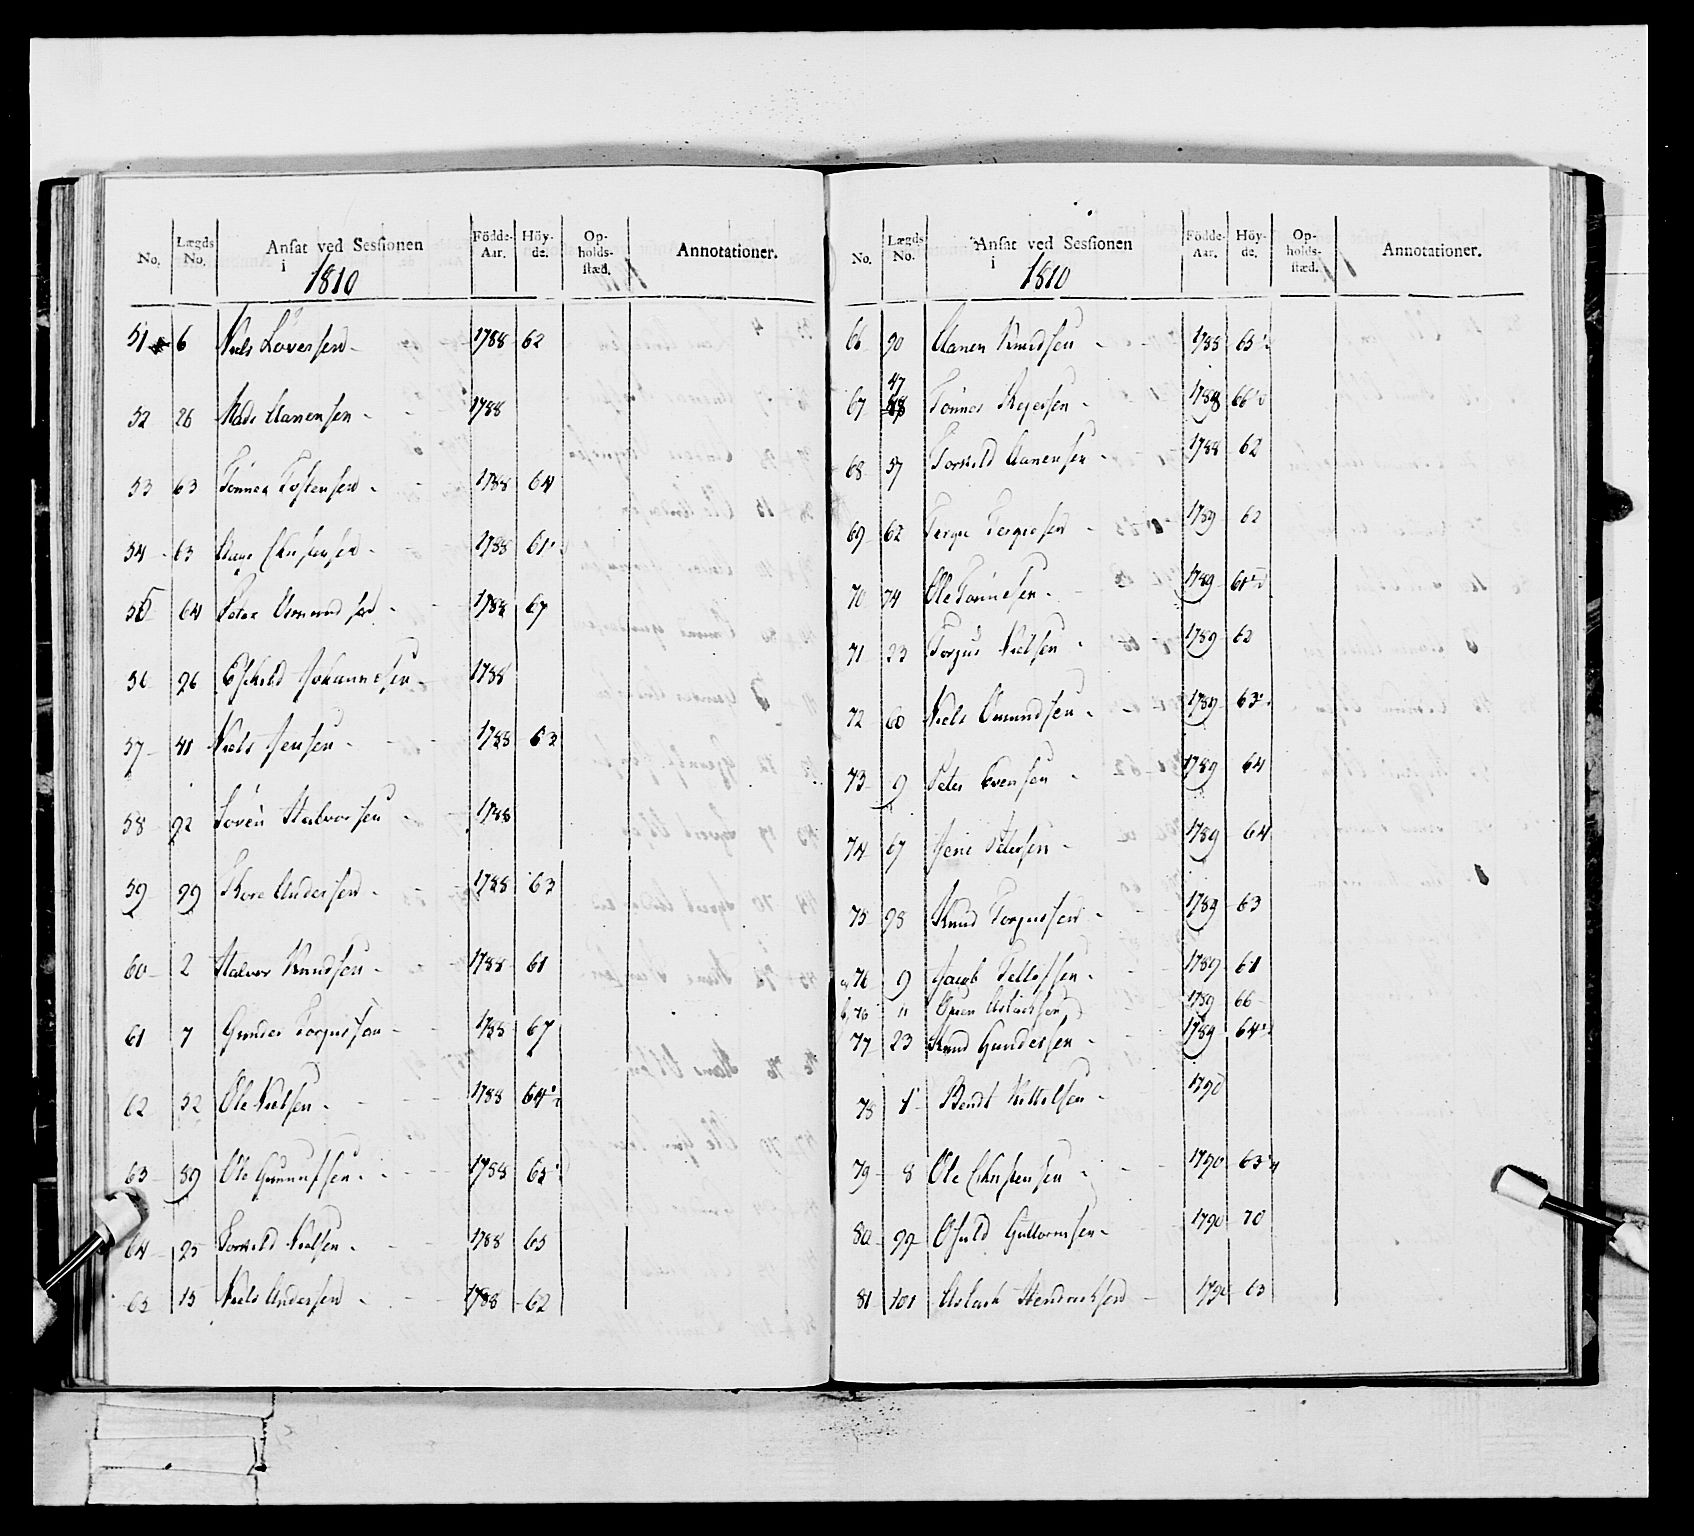 No. Lægds No. Ansat ved Sessionen i 1810 Födde-Aar. Höy-de. Op-holds-stæd. Annotationer.
51 6 Niels Löversen 1788 62
52 26 Mads Aanensen 1788
53 63 Tönnes Tostensen 1788 64
54 63 1788 61
55 64 Peter Osmundsen 1788 67
56 96 Eskild Johannesen 1788
57 41 Niels Jensen 1788 63
58 92 Sören Halvorsen 1788
59 99 Tore Andersen 1788 63
60 2 Halvor Knudsen 1788 61
61 7 Gunder Torgussen 1788 67
62 32 Ole Nielsen 1788 64½
63 89 Ole Gunnufsen 1788
64 95 Torkild Nielsen 1788 65
65 15 Niels Andersen 1788 62
No. Lægds No. Ansat ved Sessionen i 1810 Födde-Aar. Höy-de. Op-holds-stæd. Annotationer.
66 90 Aanen Knudsen 1788 65½
67 47 Tönnes Reiersen 1788 66½
68 57 Torkild Aanensen 1788 62
69 62 Tergu Tergusen 1789 62
70 74 Ole Tönnesen 1789 61½
71 23 Torgus Nielsen 1789 62
72 60 Niels Omundsen 1789 63
73 9 Peter Evensen 1789 64
74 67 Jens Petersen 1789 64
75 98 Knud Torgussen 1789 63
a, 76 9 Jacob Tellefsen 1789 61
b, 76 " Aslachsen 1789 66
77 23 Knud Gundersen 1789 64½
78 1 Bendt Kittelsen 1790
79 8 Ole Christensen 1790 63¼
80 99 Osuld Guttormsen 1790 70
81 101 Aslach Hendrichsen 1790 63